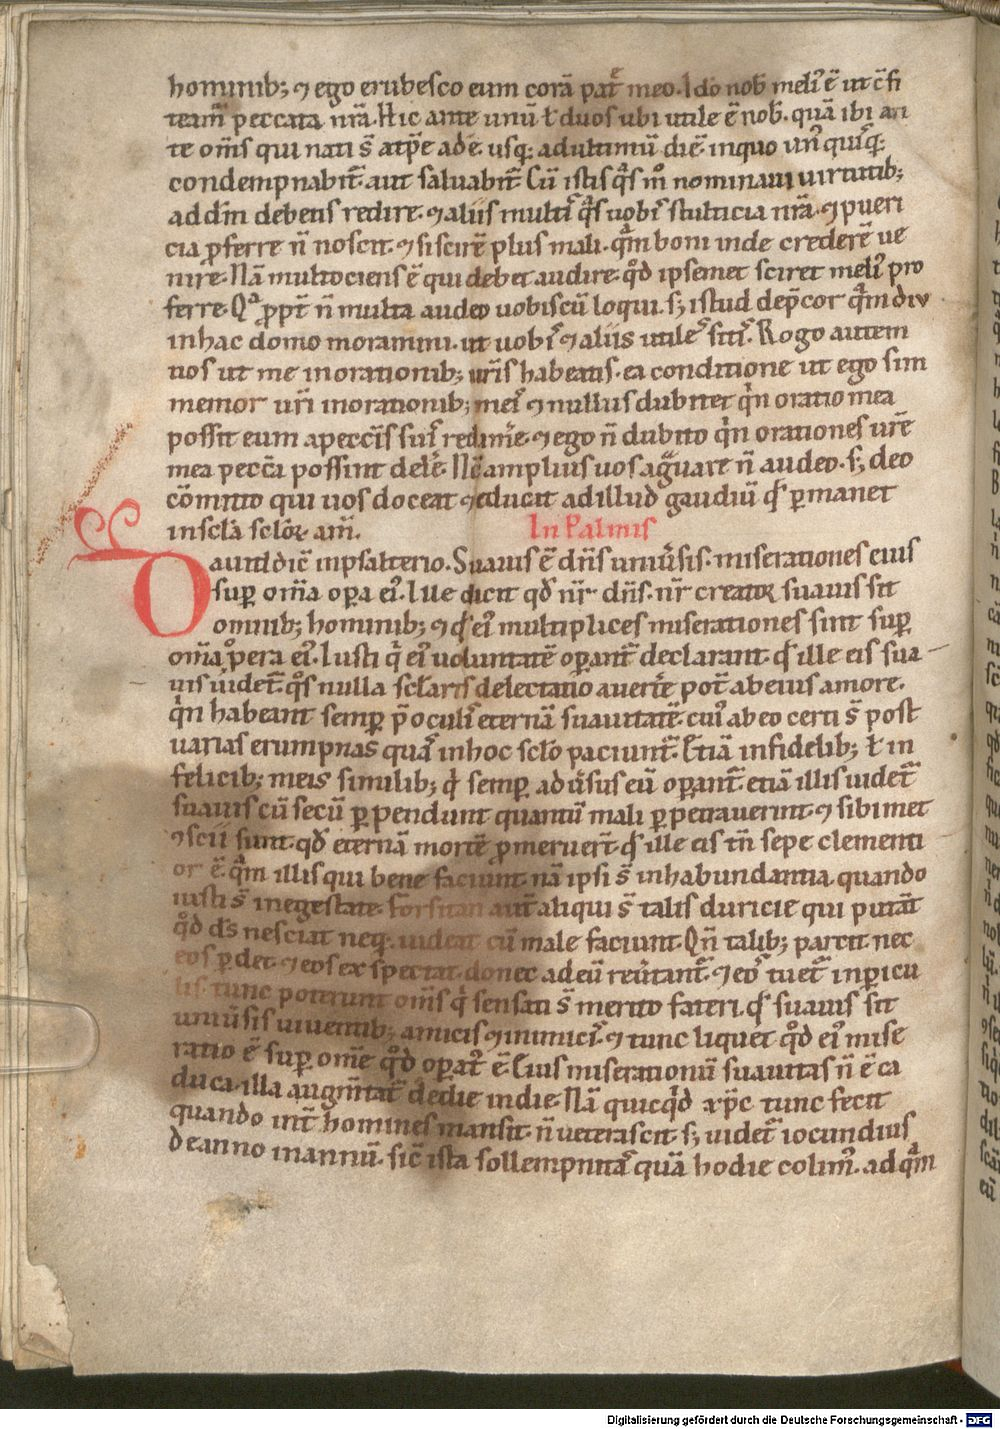 hominib; ⁊ ego erubesco eum corā pat̄e meo. Ido nob̄ meli᷒ ē ut c̄fi
team̄ peccata nr̄a. Hic ante unū ł duos ubi utile ē nob̄. quā ibi an
te om̄s qui nati s̄ atp̄e ade. usq; ad ultimū diē. in quo un᷒ quisq;
condempnabit̄ aut saluabit̄. Cū istis q̊s m̊ nominaui uirtutib;
ad dn̄m debetis redire. ⁊ aliis multis q̊s uobis stulticia nr̄a. ⁊ pueri
cia ꝓferre n̄ noscit. ⁊ si scirē plus mali. qᷓm boni inde crederē ue
nire. Nā multociens ē qui debet audire. qd̊ ipsemet sciret meli᷒ pro
ferre. Qᷓ ꝓpt̄ n̄ multa audeo uobiscū loqui. s; istud dep̄cor qᷓm diu
in hac domo moramini. ut uobis ⁊ aliis utiles sitis. Rogo autem
uos ut me in orationib; ur̄is habeatis. ea conditione ut ego sim
memor ur̄i in orationib; meis ⁊ nullus dubitet qͥn oratio mea
possit eum a pecc̄is suis redimē. ⁊ ego n̄ dubito qͥn orationes ur̄e
mea pecc̄a possint delē. Nc̄ amplius uos aḡuare n̄ audeo. s; deo
cōmitto qui uos doceat ⁊ educat ad illud gaudiū qd̄ ꝑmanet
in scl̄a scl̄oꝝ am̄. In Palmis
Dauid dic̄ in psalterio. Suauis ē dn̄s uniūsis. miserationes eius
sup̄ om̄ia op̄a ei᷒. Ille dicit qd̄ nr̄ dn̄s. nr̄ creator suauis sit
omnib; hominib; ⁊ qd̄ ei᷒ multiplices miserationes sint sup̄
om̄ia opera ei᷒. Iusti qͥ ei᷒ uoluntatē oꝑant̄ declarant. qd̄ ille eis sua
uis uidet̄. q̊s nulla sclaris delectatio auertē pot̄ ab eius amore.
qͥn habeant semp̄ p̄ oculis eternā suauitatē. cui᷒ ab eo certi s̄ post
uarias erumpnas quas in hoc scl̄o paciunt̄. Etiā infidelib; ł in
felicib; meis similib; qͥ semp̄ aduͥsus eū oꝑant̄. etiā illis uidet̄
suauis cū secū ꝑpendunt quantū mali ꝑpetrauerint ⁊ sibimet
ꝯscii sunt. qd̄ eternā mortē ꝓmeruert̄. qd̄ ille eis tn̄ sepe clementi
or ē. qᷓm illis qui bene faciunt. nā ipsi s̄ in habundantia quando
iusti s̄ in egestate. Forsitan aut̄ aliqui s̄ talis duricie qui putāt
qd̊ ds̄ nesciat neq; uideat cū male faciunt. Qn̄ talib; parcit nec
eos ꝑdet. ⁊ eos exspectat donec ad eū reūtant̄. ⁊ eos tuet̄ in ꝑicu
lis. tunc poterunt om̄s qͥ sensati s̄ merito fateri. qd̄ suauis sit
uniūsis uiuentib; amicis ⁊ inimicis. ⁊ tunc liquet qd̊ ei᷒ mise
ratio ē sup̄ om̄e qd̊ oꝑat᷒ ē. Eius miserationū suauitas n̄ ē ca
duca. illa augm̄tat̄ de die in die. Nā quicqͥd xp̄c tunc fecit
quando int̄ homines mansit. n̄ ueterascit s; uidet̄ iocundius
de anno in annū. sic̄ ista sollempnitas quā hodie colim᷒. ad qᷓm
Digitalisierung gefördert durch die Deutsche Forschungsgemeinschaft - DFG